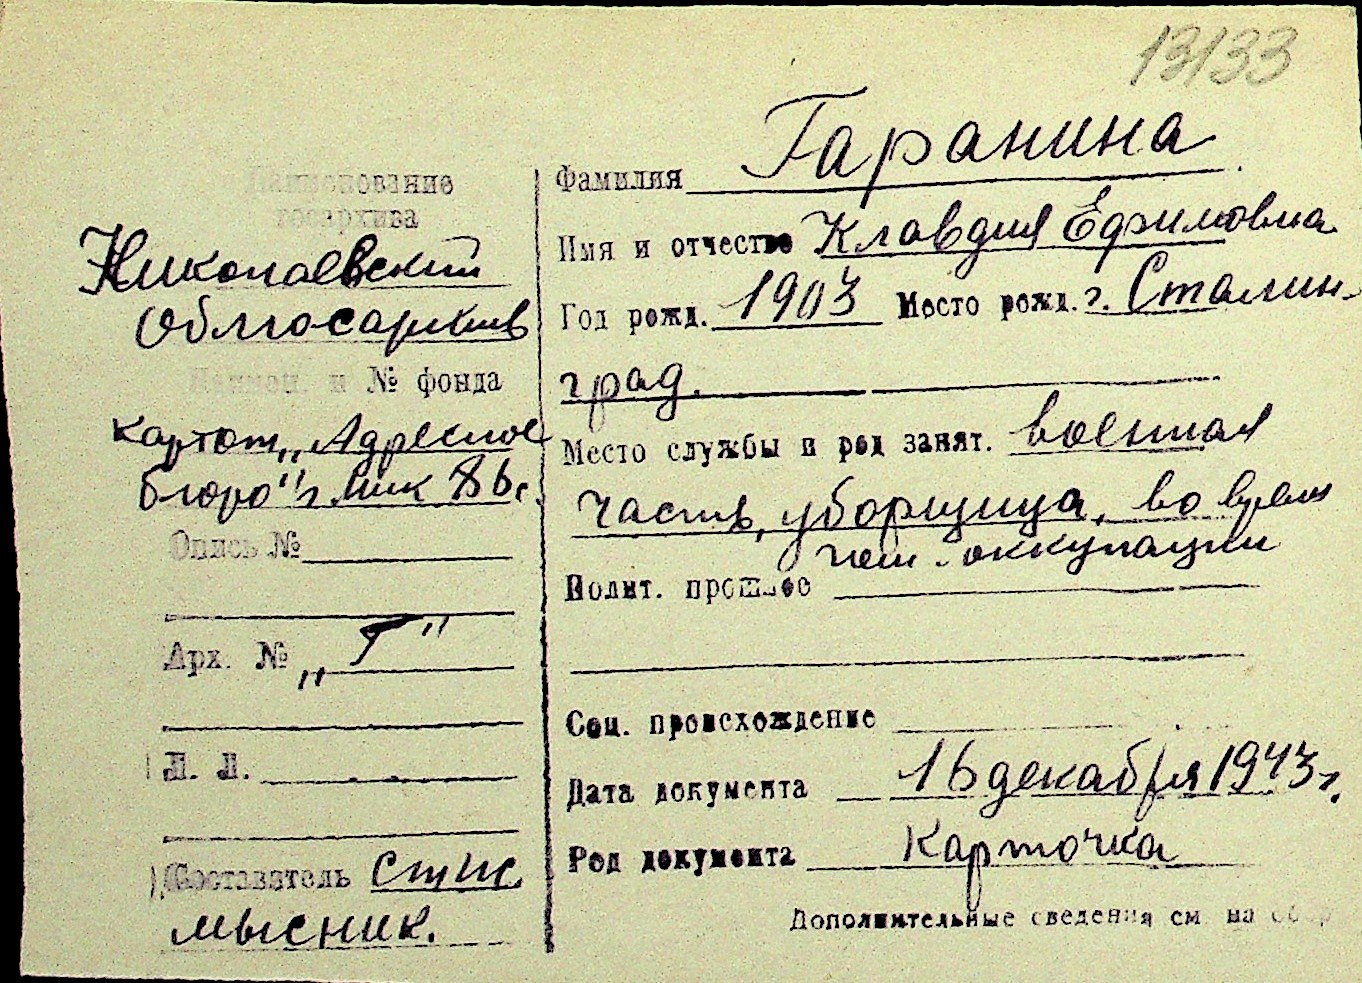 13133
Наименование
госархива
Николаевский
Облгосархив
Наимен. и № фонда
картот. „Адресное
бюро" г. Ник
Опись №
Арх. № „Г"
Л. Л.
Составитель
Мысник.
Фамилия Гаранина
Имя и отчество Клавдия Ефимовна
Год рожд. 1903 Место рожд. г. Сталин-
град.
Место службы и род занят. военная
часть, уборщица, во время
нем. оккупации
Полит. прошлое
Соц. происхождение
Дата документа 16 декабря 1943 г.
Род документа Карточка
Дополнительные сведения см на обор